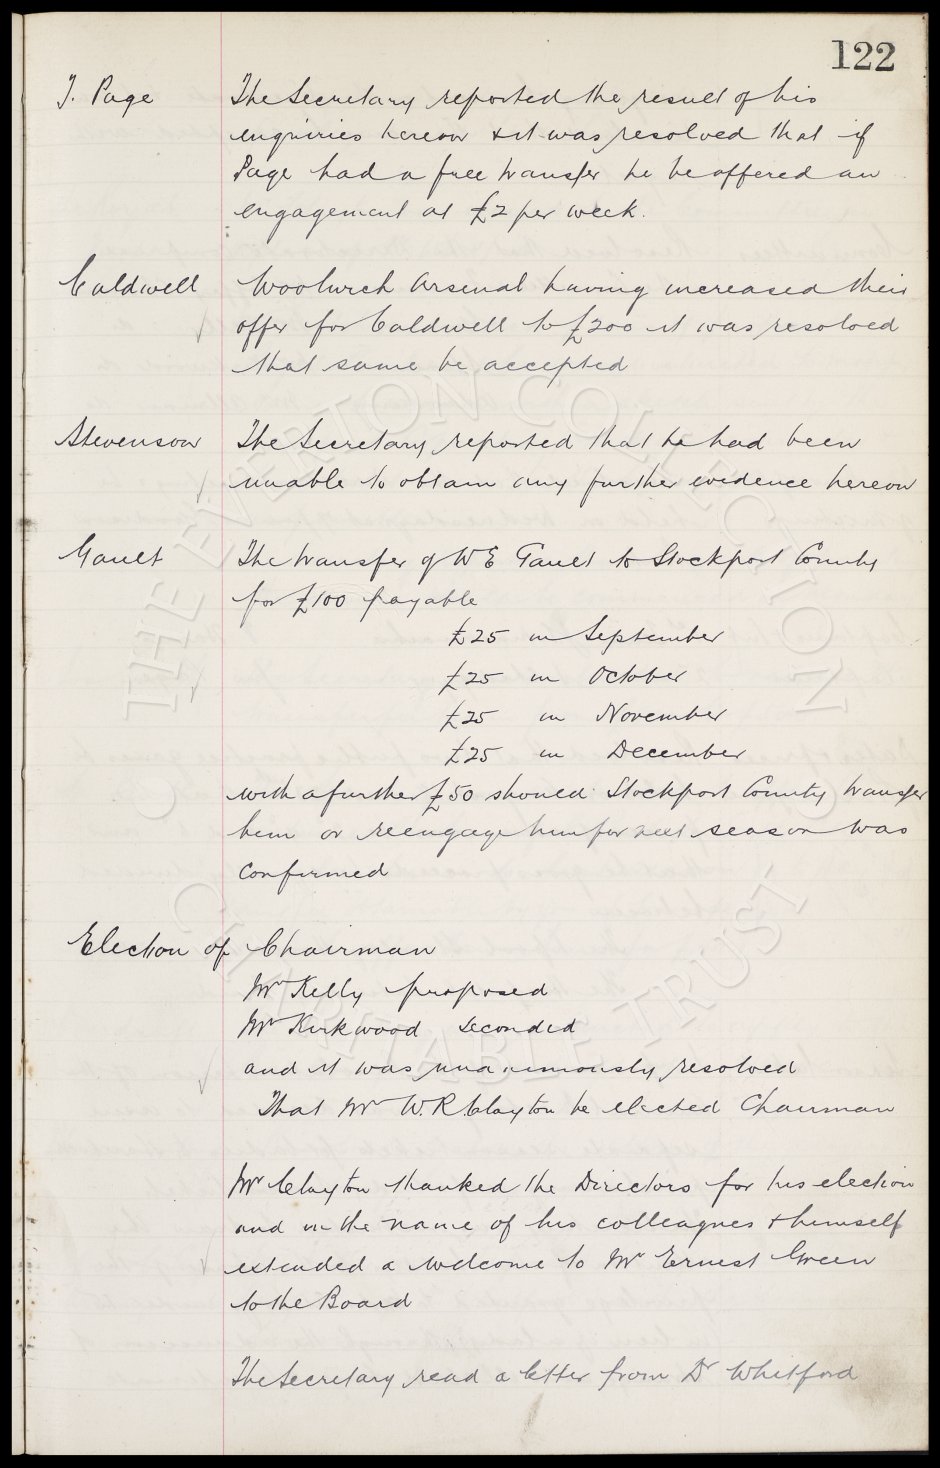 122
T. Page The Secretary reported the result of his
enquiries hereon & it was resolved that if
Page had a free transfer he be offered an
engagement at £2 per week.
Caldwell Woolwich Arsenal having increased their
offer for Caldwell to £200 it was resolved
that same be accepted
Stevenson The Secretary reported that he had been
unable to obtain any further evidence hereon
Gault The transfer of W E Gault to Stockport County
for £100 payable
£25 in September
£25 in October
£25 in November
£25 in December
with a further £50 should Stockport County transfer
him or reengage him for next season was
confirmed
Election of Chairman
Mr Kelly proposed
Mr Kirkwood seconded
and it was unanimously resolved
That Mr W.R. Clayton be elected Chairman
Mr Clayton thanked the Directors for his election
and in the name of his colleagues & himself
extended a welcome to Mr Ernest Green
to the Board
The Secretary read a letter from Dr Whitford
THE EVERTON COLLECTION CHARITABLE TRUST